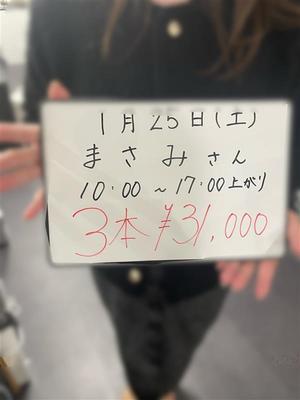 1月25日(土)
まさみさん
10:00～17:00上がり
3本 ¥31,000